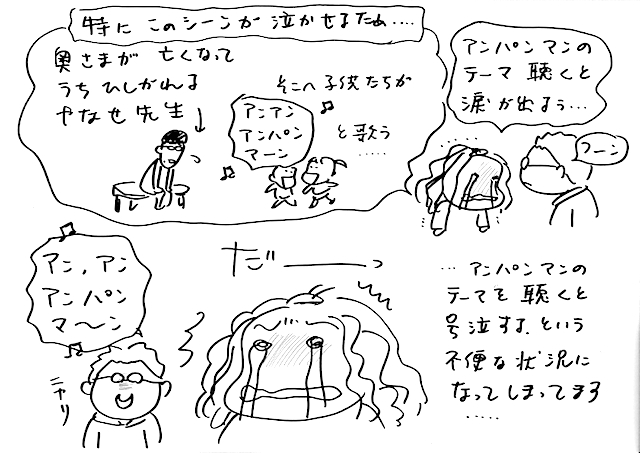 特に このシーンが 泣かせるためぇ....
奥さまが 亡くなって
うちひしがれる
やなせ先生
そこへ子供たちが
アンアン
アンパン
マーン
と歌う
......
アンパンマンの
テーマ 聴くと
涙が出るぅ...
......
フーン
アン、アン
アンパン
マ〜ン
ニヤリ
だーーっ
...アンパンマンの
テーマを 聴くと
号泣する、という
不便な状況に
なってしまってます
.....